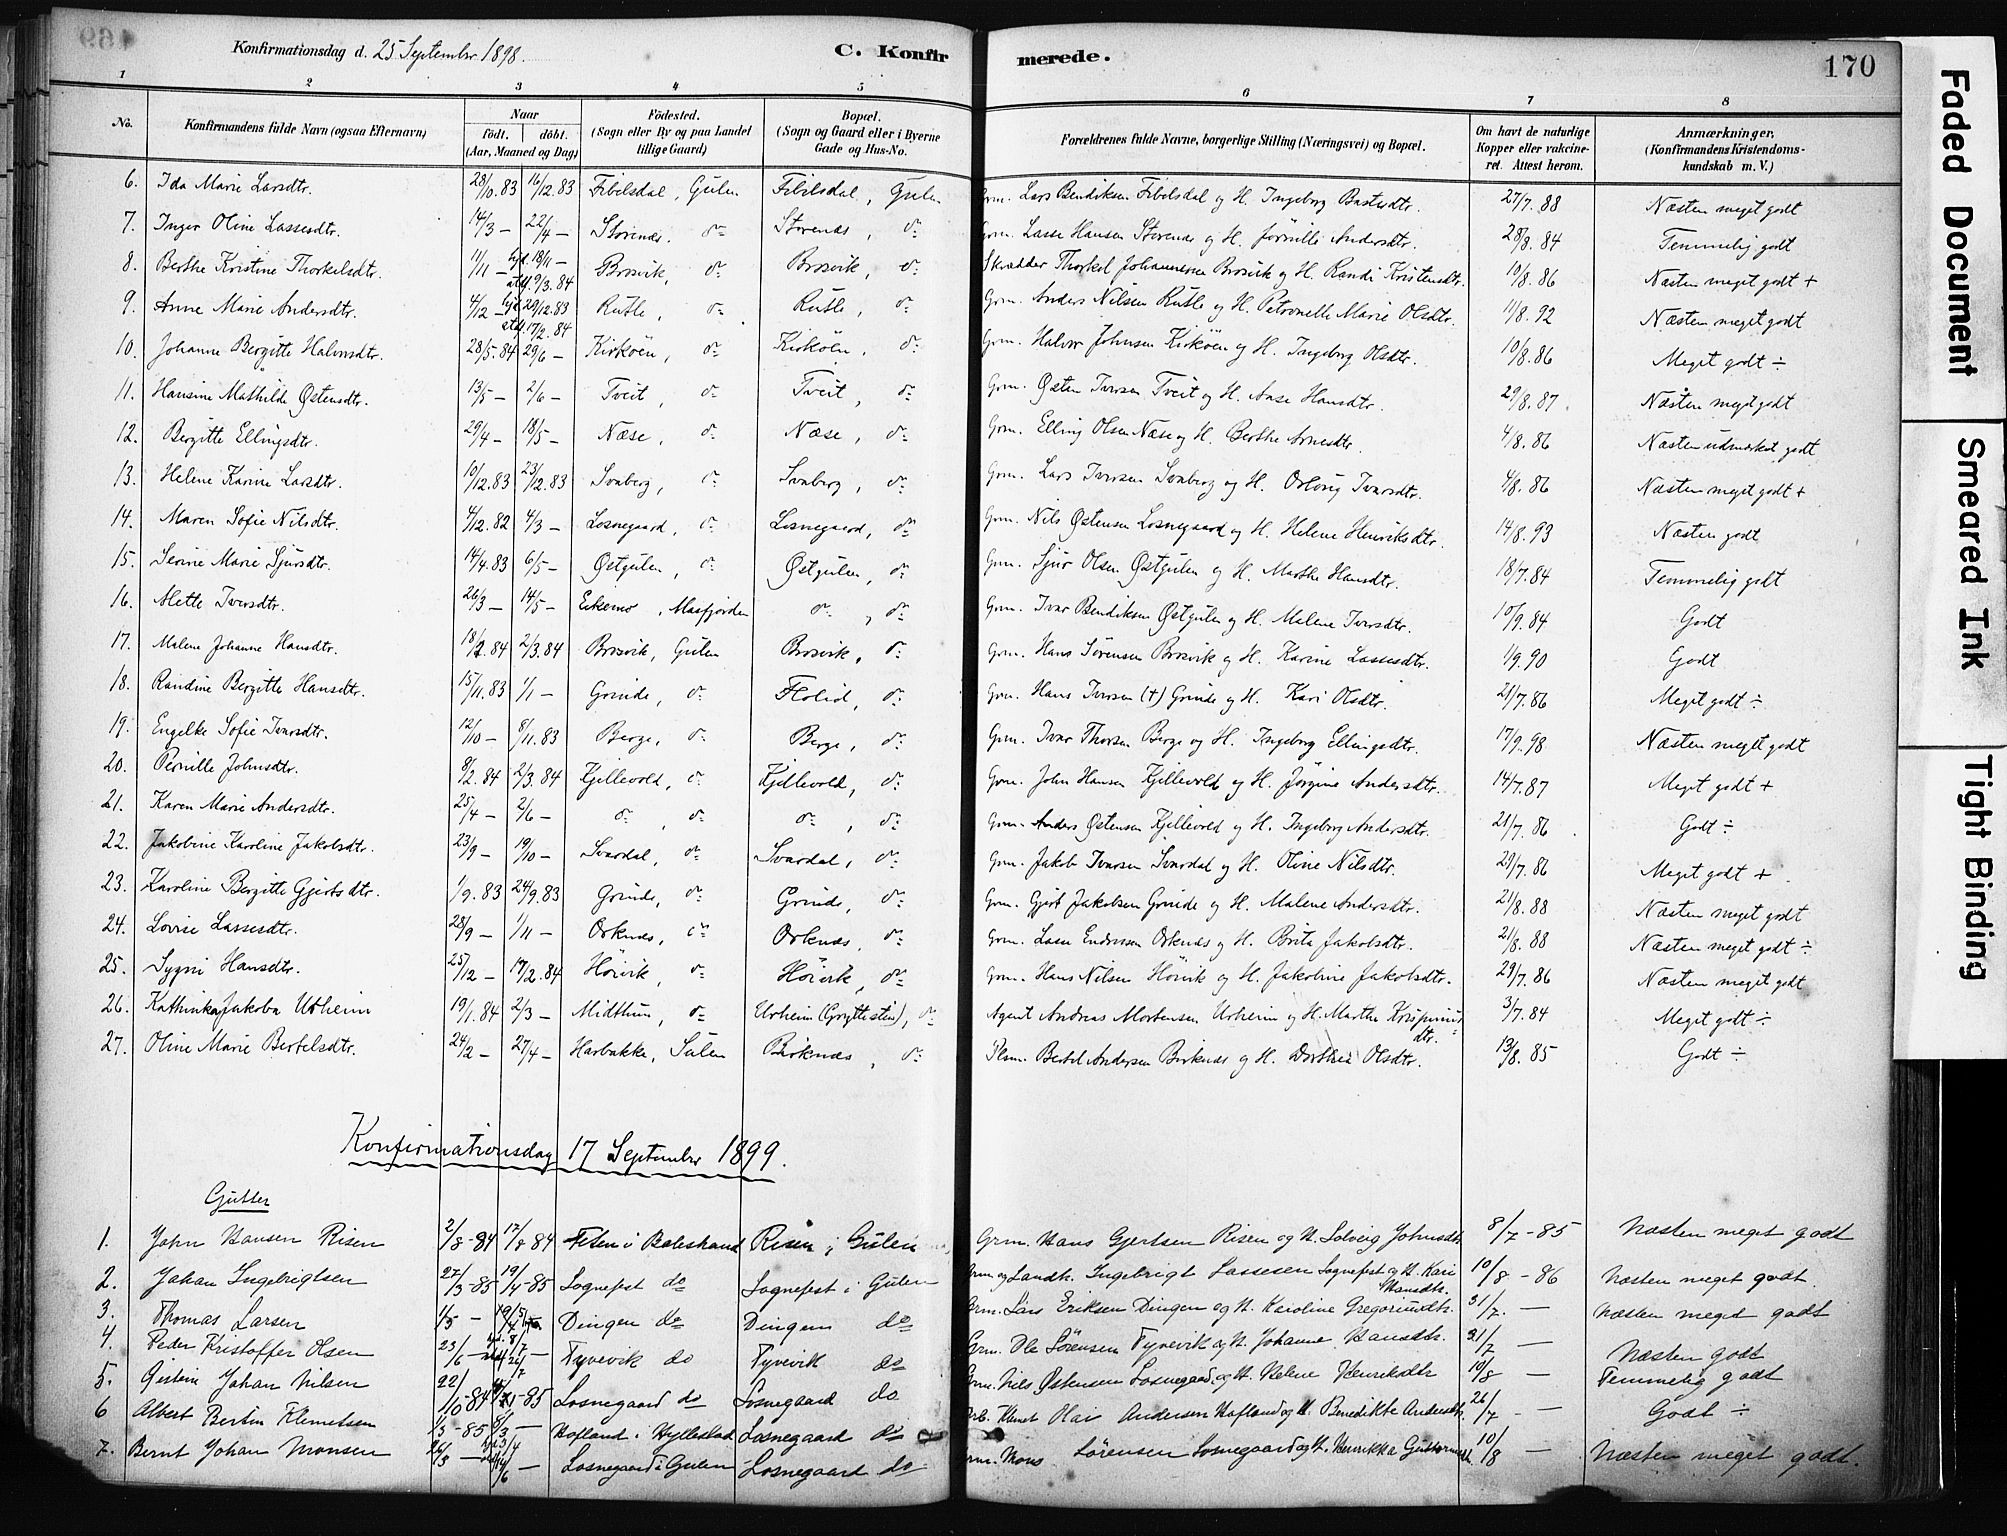 Konfirmationsdag d. 25 September 1898. C. Konfirmerede. 170
1 2 3 4 5 6 7 8
No. Konfirmandens fulde Navn (ogsaa Efternavn) Naar födt. döbt. (Aar, Maaned og Dag) Födested. (Sogn eller By og paa Landet tillige Gaard) Bopæl. (Sogn og Gaard eller i Byerne Gade og Hus-No. Forældrenes fulde Navne, borgerlige Stilling (Næringsvei) og Bopæl. Om havt de naturlige Kopper eller vakcineret. Attest herom. Anmærkninger. (Konfirmandens Kristendomskundskab m. V.)
6. Ida Marie Larsdtr. 28/10.83 16/12.83 Fibelsdal, Gulen Fibelsdal, Gulen Grm. Lars Bendiksen Fibelsdal og H. Ingeborg 27/7.88 Næsten meget godt
7. Inger Oline Lassesdtr. 14/3 — 22/4 — Storenæs, do Storenæs, do Grm. Lasse Hansen Storenæs og H. Andersdtr. 28/8.84 Temmelig godt
8. Berthe Kristine Thorkelsdtr. 11/11 — hjd. 18/11 — atf. 9/3.84 Brosvik, do Brosvik, do Skrædder Thorkel Johannessen Brosvik og H. Randi Kristensdtr. 10/8.86 Næsten meget godt +
9. Anne Marie Andersdtr. 4/12 — hjd. 29/12.83 atf. 17/2.84 Rutle, do Rutle, do Grm. Anders Nilsen Rutle og H. Petronelle Marie Olsdtr. 11/8.92 Næsten meget godt
10. Johanne Bergitte Halvorsdtr. 28/5.84 29/6 — Kirköen, do Kirköen, do Grm. Halvor Johnsen Kirköen og H. Ingeborg Olsdtr. 10/8.86 Meget godt ÷
11. Hansine Mathilde Østensdtr. 13/5 — 2/6 — Tveit, do Tveit, do Grm. Østen Iversen Tveit og H. Anse Hansdtr. 29/8.87. Næsten meget godt
12. Bergitte Ellingsdtr. 29/4 — 18/5 — Næse, do Næse, do Grm. Elling Olsen Næse og H. Berthe Arnesdtr. 4/8.86 Næsten udmærket godt
13. Helene Karine Larsdtr. 10/12.83 23/12.83 Svaberg, do Svaberg, do Grm. Lars Iversen Svaberg og H. Orlaug Ivarsdtr. 4/8.86 Næsten meget godt +
14. Maren Sofie Nilsdtr. 4/12.82 4/3 — Losnegaard, do Losnegaard, do Grm. Nils Østensen Losnegaard og H. Helene Henriksdtr. 14/8.93 Næsten godt
15. Serine Marie Sjursdtr. 14/4.83 6/5 — Østgulen, do Østgulen, do Grm. Sjur Olsen Østgulen og H. Marthe Hansdtr. 18/7.84 Temmelig godt
16. Mette Iversdtr. 26/3 — 14/5 — Eikemo, Masfjorden do, do Grm. Ivar Bendiksen Østgulen og H. Malene Iversdtr. 10/9.84 Godt
17. Malene Johanne Hansdtr. 18/2.84 2/3.84 Brosvik, Gulen Brosvik, do Grm. Hans Sørensen Brosvik og H. Karine Lassesdtr. 1/9.90 Godt
18. Randine Bergitte Hansdtr. 15/11.83 1/1 — Grinde, do Flolid, do Grm. Hans Iversen (+) Grinde og H. Kari Olsdtr. 21/7.86 Meget godt ÷
19. Engelke Sofie Ivarsdtr. 12/10 — 8/11.83 Berge, do Berge, do Grm. Ivar Thorsen Berge og H. Ingeborg Ellingsdtr. 17/9.98 Næsten meget godt
20. Pernille Johnsdtr. 8/2.84 2/3.84 Kjillevold, do Kjillevold, do Grm. John Hansen Kjillevold og H. Jørgine Andersdtr. 14/7.87 Meget godt +
21. Karen Marie Andersdtr. 25/4 — 2/6 — do, do do, do Grm. Anders Østensen Kjillevold og H. Ingeborg Andersdtr. 21/7.86 Godt ÷
22. Jakobine Karoline Jakobsdtr. 23/9 — 19/10 — Svardal, do Svardal, do Grm. Jakob Ivarsen Svardal og H. Oline Nilsdtr. 29/7.86 Meget godt +
23. Karoline Bergitte Gjertsdtr. 1/9.83 24/9.83 Grinde, do Grinde, do Grm. Gjert Jakobsen Grinde og H. Malene Andersdtr. 21/8.88 Næsten meget godt
24. Lovise Lassesdtr. 28/9 — 1/11 — Orknæs, do Orknæs, do Grm. Lasse Endresen Orknæs og H. Brita Jakobsdtr. 21/8.88 Næsten meget godt ÷
25. Sygni Hansdtr. 25/12 — 17/2.84 Höivik, do Höivik, do Grm. Hans Nilsen Höivik og H. Jakobine Jakobsdtr. 29/7.86 Næsten meget godt
26. Kathinka Jakoba Urheim 19/1.84 2/3 — Midthun, do Urheim (Gryttesten), do Agent Andreas Mortensen Urheim og H. Marthe Krispinusdtr. 3/7.84 Meget godt ÷
27. Oline Marie Bertelsdtr. 24/2 — 27/4 — Harbakke, Sulen Birknæs, do Plsm. Bertel Andersen Birknæs og H. Dorthea Olsdtr. 13/8.85 Godt ÷
Konfirmationsdag 17 September 1899.
Gutter
1. John Hansen Risen 2/8-84 17/8 84 Feten i Balestrand Risen i Gulen Grm. Hans Gjertsen Risen og H. Solveig Johnsdtr. 8/7-85 Næsten meget godt
2. Johan Ingebrigtsen 27/3-85 19/4-85 Sognefest do Sognefest i Gulen Grm og Landh. Ingebrigt Lassesen Sognefest og H. Kari Hansdtr. 10/8-86 Næsten meget godt.
3. Thomas Larsen 1/5 — Dingen do Dingen do Grm. Lars Eriksen Dingen og H. Karoline Gregoriusdtr. 31/7. — Næsten meget godt
4. Peder Kristoffer Olsen 23/6 — Tyvevik do Tyvevik do Grm. Ole Sörensen Tyvevik og H. Johanne Hansdtr. 31/7 — Næsten godt
5. Johan Nilsen 22/10-84 Losnegaard do Losnegaard do Grm. Nils Østensen Losnegaard og H. Helene Henriksdtr 10/8 — Temmelig godt
6 Albert Bertin Klemetsen 1/3-85 Hofland i Hyllestad Losnegaard do Klemet Olai Andersen Hofland og H. Benedikte Andersdtr. 26/7 — Godt ÷
7. Bernt Johan Monsen 26/3 — Losnegaard i Gulen Losnegaard do Grm. Mons Sörensen Losnegaard og H. Henrikka 10/8 — Næsten meget godt.
Faded Document
Smeared Ink
Tight Binding